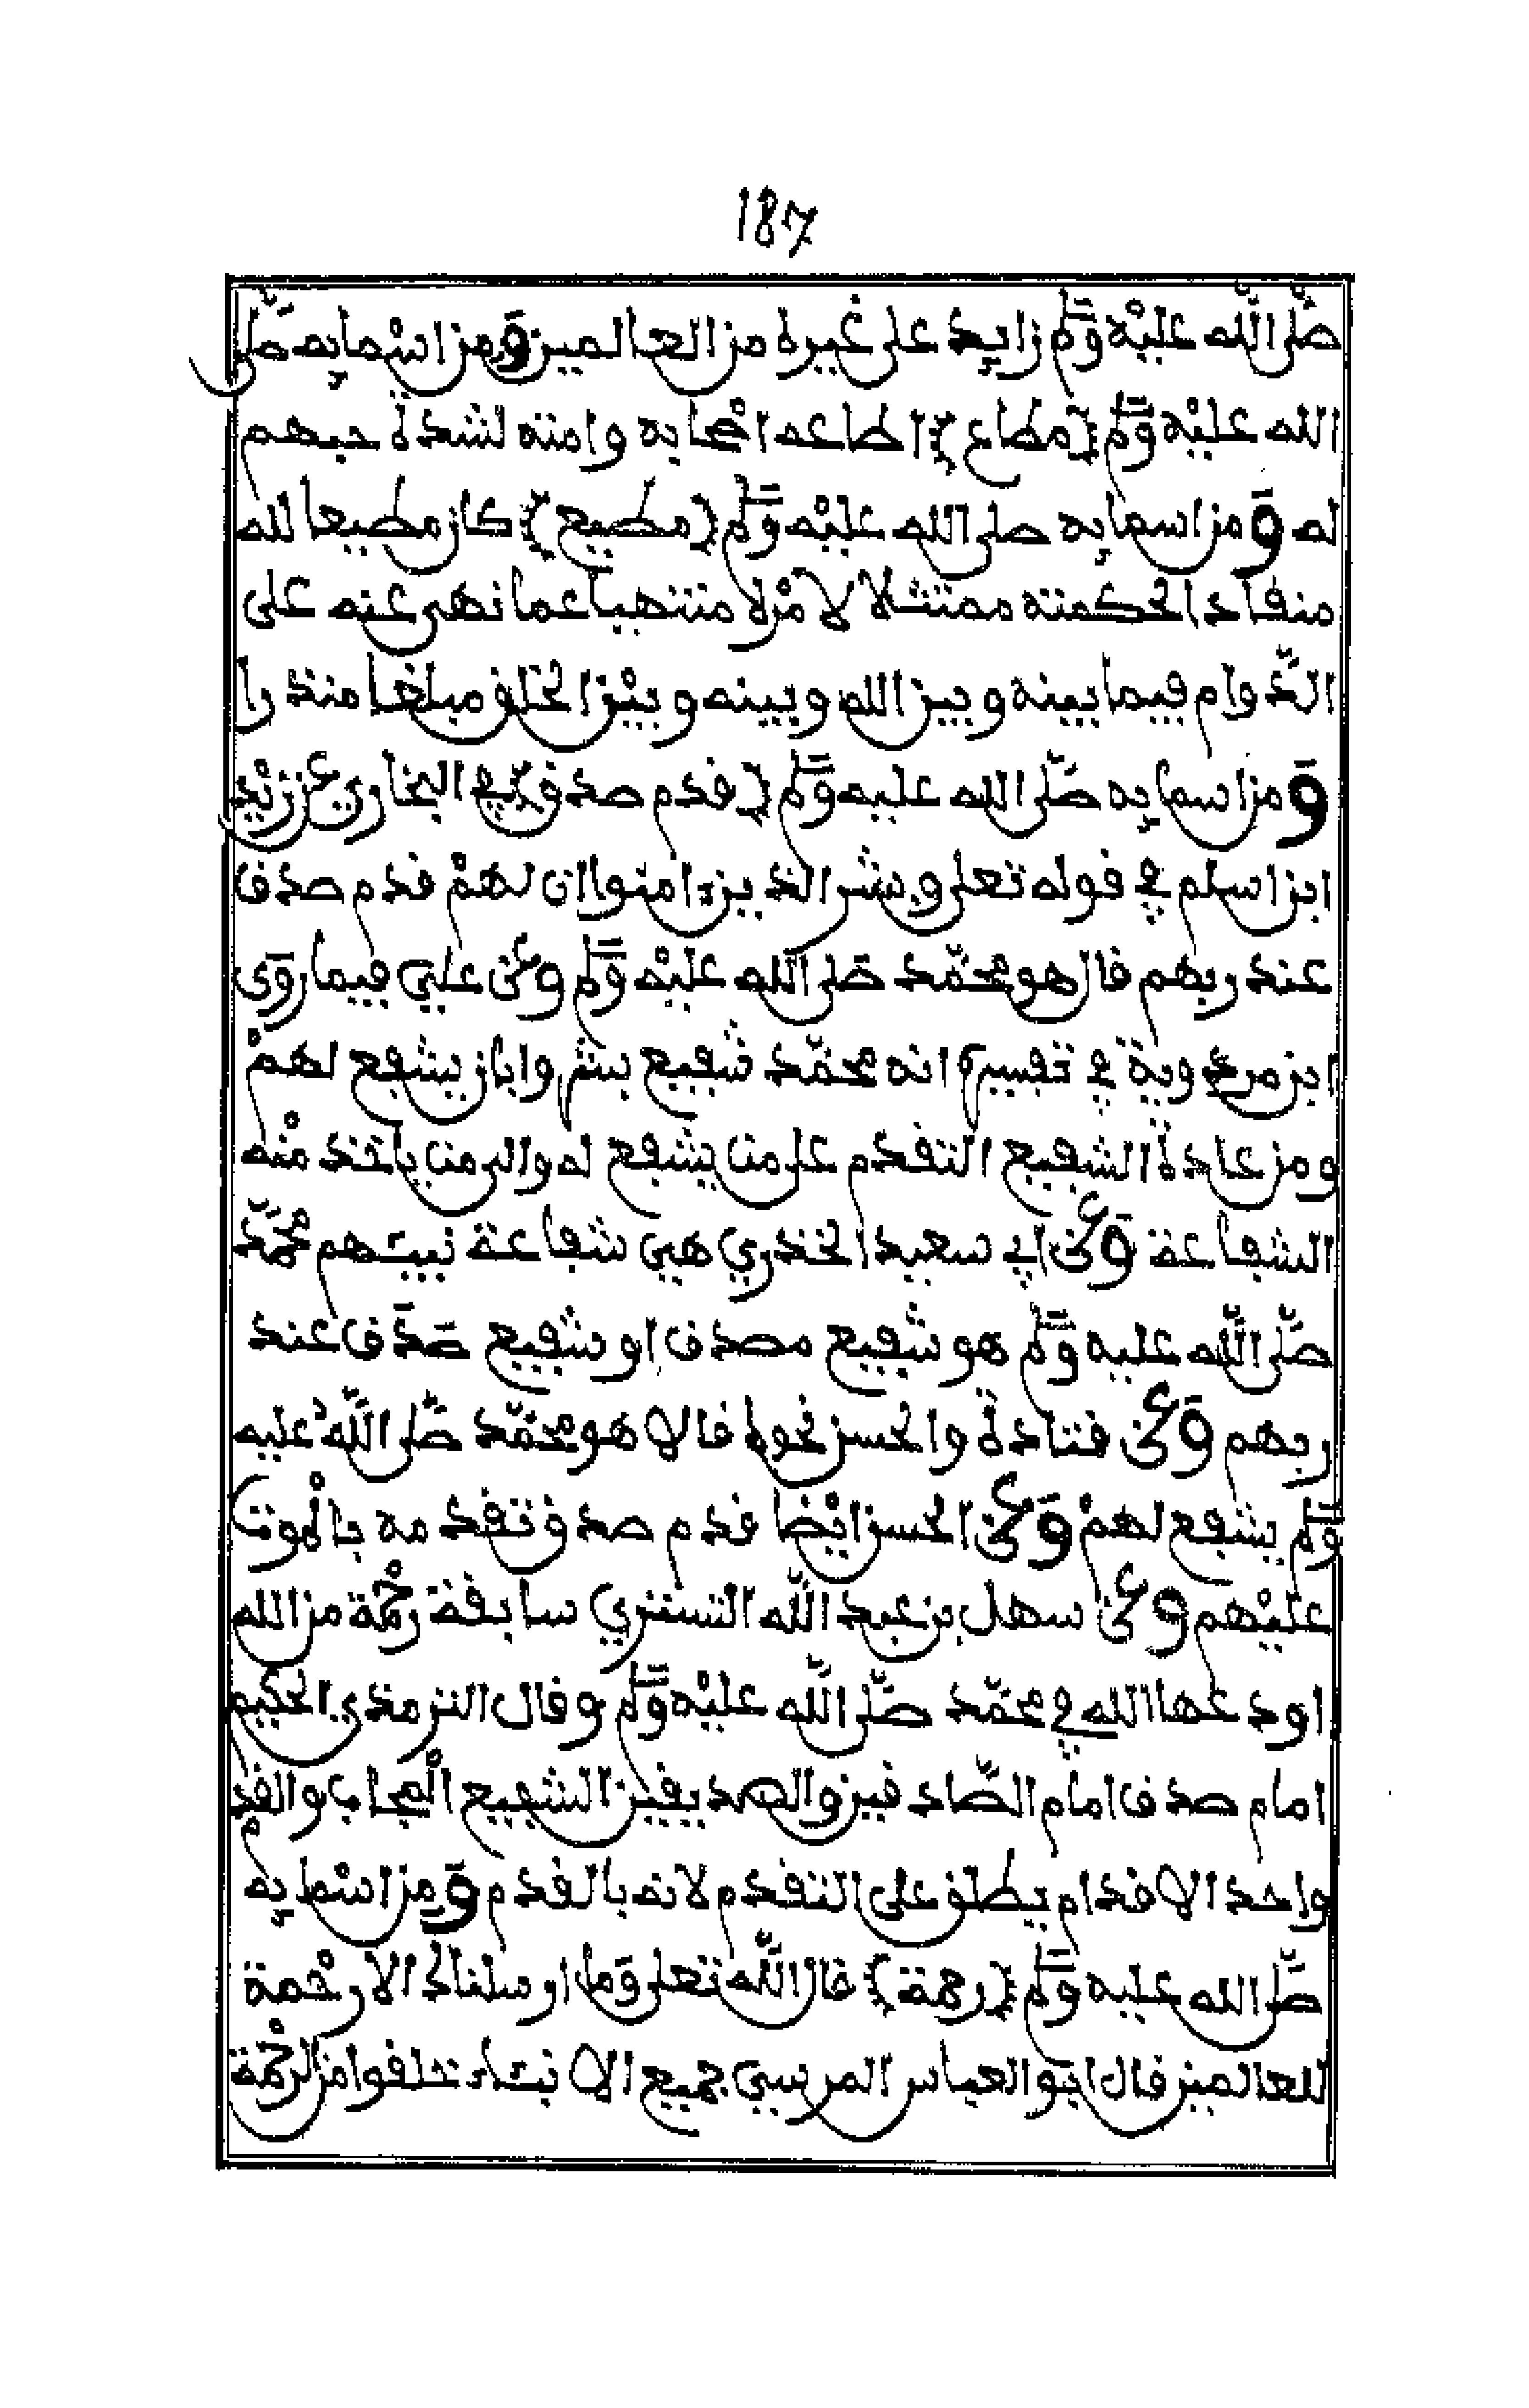 187
صلى الله عليه وسلم زايد على غيره من العالمين ومن اسمايه صلى
الله عليه وسلم (مطاع) اطاعه اصحابه وامته لشدة حبهم
له ومن اسمايه صلى الله عليه وسلم (مطيع) كان مطيعا لله
منقادا لحكمته ممتثلا لامره منتهيا عما نهى عنه على
الدوام فيما بينه وبين الله وبينه وبين الخلق مبلغا منذرا
ومن اسمايه صلى الله عليه وسلم (قدم صدق) في البخاري عن زيد
ابن اسلم في قوله تعلى وبشر الذين ءامنوا ان لهم قدم صدق
عند ربهم قال هو محمد صلى الله عليه وسلم وعن علي فيما روى
ابن مردويه في تفسيره انه محمد شفيع بشر وابان يشفع لهم
ومن عادة الشفيع التقدم على من يشفع له والى من ياخذ منه
الشفاعة وعن ابي سعيد الخذري هي شفاعة نبيهم محمد
صلى الله عليه وسلم هو شفيع مصدق او شفيع صدق عند
ربهم وعن قتادة والحسن نحوه قالا هو محمد صلى الله عليه
وسلم يشفع لهم وعن الحسن ايضا قدم صدق تقدمه بالموت
عليهم وعن سهل بن عبد الله التستري سابقة رحمة من الله
اودعها الله في محمد صلى الله عليه وسلم وقال الترمذي الحكيم
امام صدق امام الصادقين والصديقين الشفيع المجاب والقدم
واحد الاقدام يطلق على التقدم لانه بالقدم ومن اسمايه
صلى الله عليه وسلم (رحمة) قال الله تعلى وما ارسلناك الا رحمة
للعالمين قال ابو العباس المرسي جميع الانبياء خلقوا من الرحمة